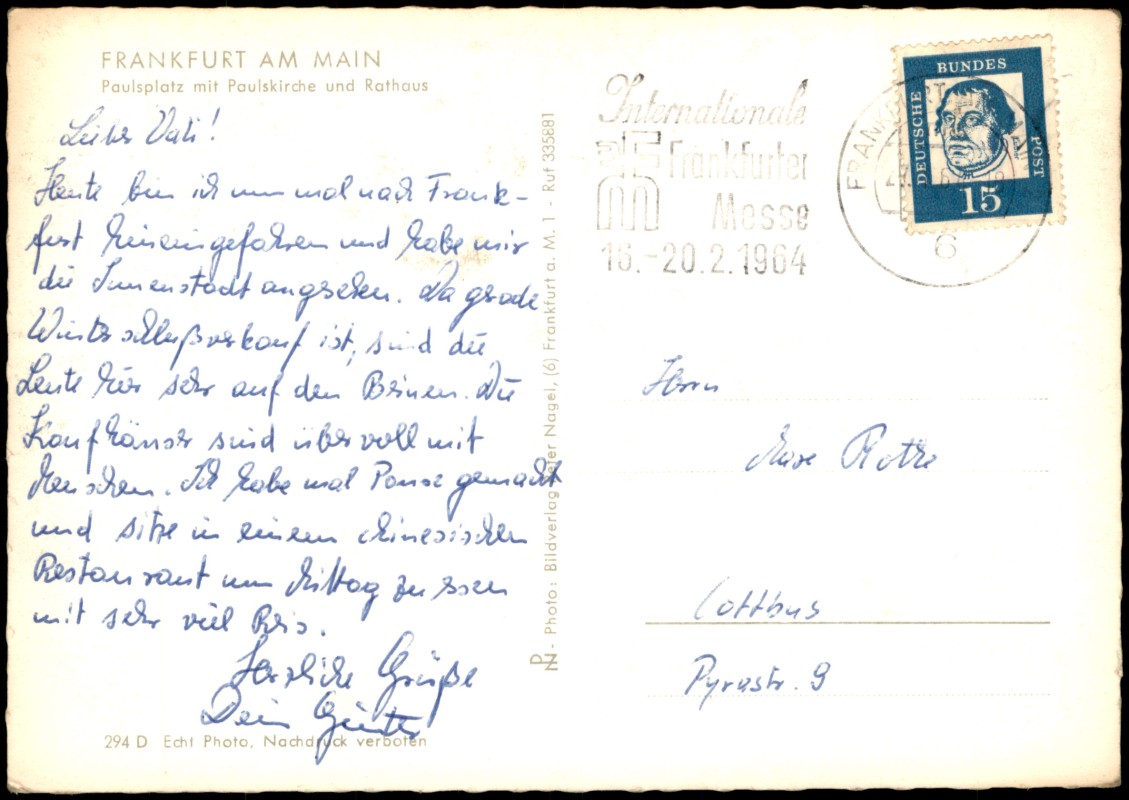 FRANKFURT AM MAIN
Paulsplatz mit Paulskirche und Rathaus
Lieber Vati!
Heute bin ich nun mal nach Frank-
furt hineingefahren und habe mir
die Innenstadt angesehen. Da grade
Winterschlußverkauf ist, sind die
Leute hier sehr auf den Beinen. Die
Kaufhäuser sind übervoll mit
Menschen. Ich habe mal Pause gemacht
und sitze in einem chinesischen
Restaurant um Mittag zu essen
mit sehr viel Reis.
Herzliche Grüße
Dein Günter
294 D Echt Photo, Nachdruck verboten
PN - Photo: Bildverlag Peter Nagel, (6) Frankfurt a. M. 1 - Ruf 335881
Internationale
Frankfurter
Messe
16.-20.2.1964
FRANKFURT
6
DEUTSCHE
BUNDES
POST
15
Herrn
Max Rothe
Cottbus
Pyrastr. 9